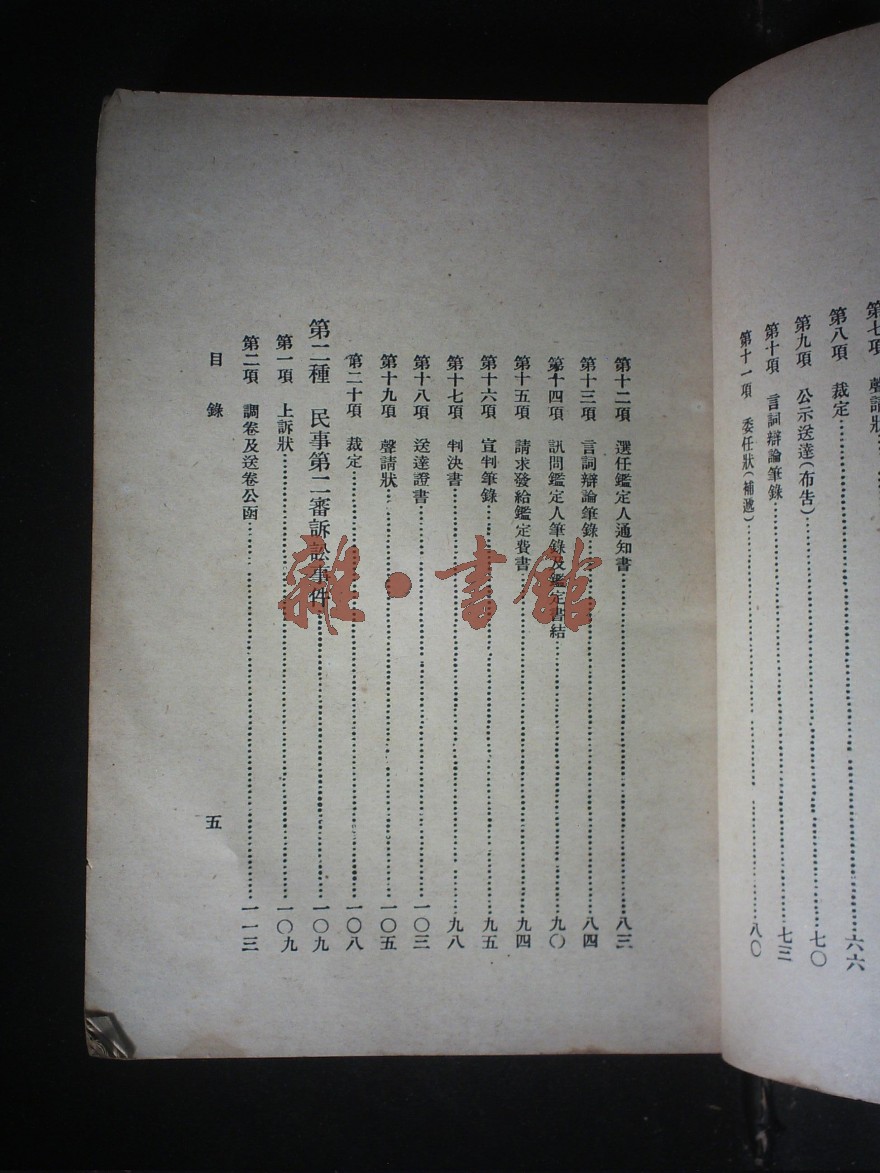 第七項　聲請狀
第八項　裁定……六六
第九項　公示送達(布告)……七〇
第十項　言詞辯論筆錄……七三
第十一項　委任狀(補遞)……八〇
第十二項　選任鑑定人通知書……八三
第十三項　言詞辯論筆錄……八四
第十四項　訊問鑑定人筆錄及鑑定書結……九〇
第十五項　請求發給鑑定費書……九四
第十六項　宣判筆錄……九五
第十七項　判決書……九八
第十八項　送達證書……一〇三
第十九項　聲請狀……一〇五
第二十項　裁定……一〇八
第二種　民事第二審訴訟事件……一〇九
第一項　上訴狀……一〇九
第二項　調卷及送卷公函……一一三
目　錄　五
雜·書館